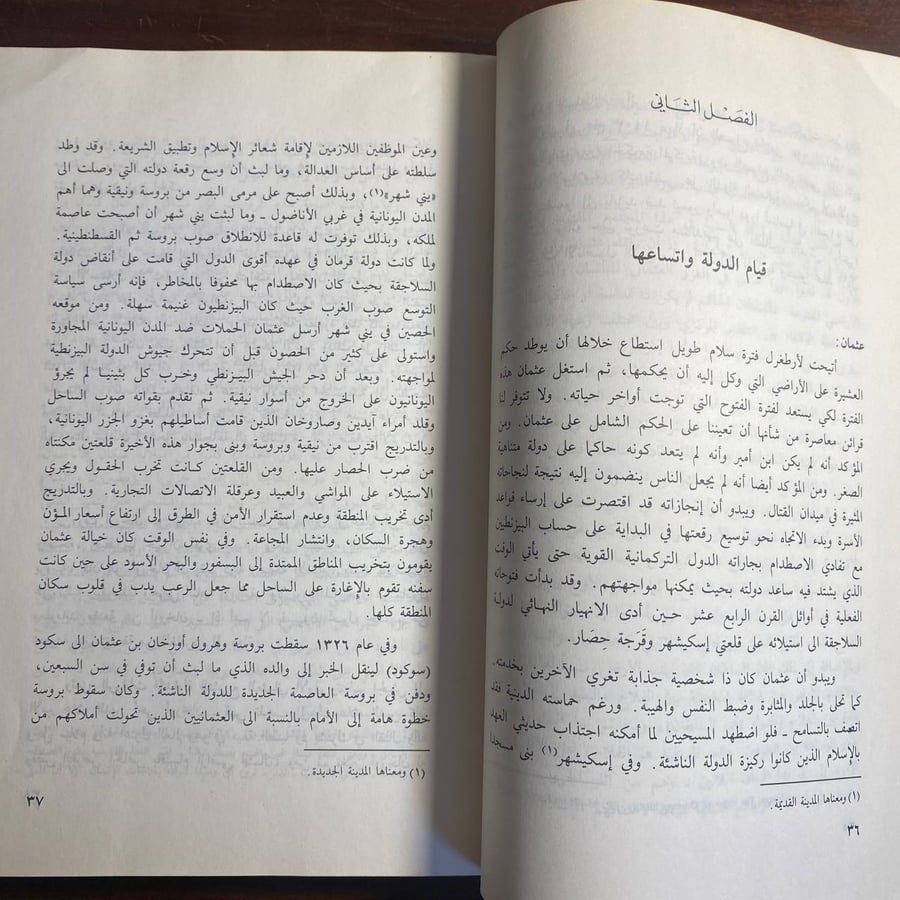 الفصل الثاني
قيام الدولة واتساعها
عثمان:
أتيحت لأرطغرل فترة سلام طويل استطاع خلالها أن يوطد حكم
العشيرة على الأراضي التي وكل إليه أن يحكمها، ثم استغل عثمان هذه
الفترة لكي يستعد لفترة الفتوح التي توجت أواخر حياته. ولا تتوفر لنا
قرائن معاصرة من شأنها أن تعيننا على الحكم الشامل على عثمان. ومن
المؤكد أنه لم يكن ابن أمير وأنه لم يتعد كونه حاكما على دولة متناهية
الصغر. ومن المؤكد أيضا أنه لم يجعل الناس ينضمون إليه نتيجة لنجاحاته
المثيرة في ميدان القتال. ويبدو أن إنجازاته قد اقتصرت على إرساء قواعد
الأسرة وبدء الاتجاه نحو توسيع رقعتها في البداية على حساب البيزنطيين
مع تفادي الاصطدام بجاراته الدول التركمانية القوية حتى يأتي الوقت
الذي يشتد فيه ساعد دولته بحيث يمكنها مواجهتهم. وقد بدأت فتوحاته
الفعلية في أوائل القرن الرابع عشر حين أدى الانهيار النهائي لدولة
السلاجقة الى استيلائه على قلعتي إسكيشهر وقَرَجة حِصَار.
ويبدو أن عثمان كان ذا شخصية جذابة تغري الآخرين بخدمته.
كما تحلى بالجلد والمثابرة وضبط النفس والهيبة. ورغم حماسته الدينية فقد
اتصف بالتسامح - فلو اضطهد المسيحيين لما أمكنه اجتذاب حديثي العهد
بالإسلام الذين كانوا ركيزة الدولة الناشئة. وفي إسكيشهر(١) بنى مسجدا
(١) ومعناها المدينة القديمة.
٣٦
وعين الموظفين اللازمين لإقامة شعائر الإسلام وتطبيق الشريعة. وقد وطد
سلطته على أساس العدالة، وما لبث أن وسع رقعة دولته التي وصلت الى
«يني شهر»(١)، وبذلك أصبح على مرمى البصر من بروسة ونيقية وهما أهم
المدن اليونانية في غربي الأناضول - وما لبثت يني شهر أن أصبحت عاصمة
لملكه، وبذلك توفرت له قاعدة للانطلاق صوب بروسة ثم القسطنطينية.
ولما كانت دولة قرمان في عهده أقوى الدول التي قامت على أنقاض دولة
السلاجقة بحيث كان الاصطدام بها محفوفا بالمخاطر، فإنه أرسى سياسة
التوسع صوب الغرب حيث كان البيزنطيون غنيمة سهلة. ومن موقعه
الحصين في يني شهر أرسل عثمان الحملات ضد المدن اليونانية المجاورة
واستولى على كثير من الحصون قبل أن تتحرك جيوش الدولة البيزنطية
لمواجهته. وبعد أن دحر الجيش البيزنطي وخرب كل بثينيا لم يجرؤ
اليونانيون على الخروج من أسوار نيقية. ثم تقدم بقواته صوب الساحل
وقلد أمراء آيدين وصاروخان الذين قامت أساطيلهم بغزو الجزر اليونانية،
وبالتدريج اقترب من نيقية وبروسة وبنى بجوار هذه الأخيرة قلعتين مكنتاه
من ضرب الحصار عليها. ومن القلعتين كانت تخرب الحقول ويجري
الاستيلاء على المواشي والعبيد وعرقلة الاتصالات التجارية. وبالتدريج
أدى تخريب المنطقة وعدم استقرار الأمن في الطرق إلى ارتفاع أسعار المؤن
وهجرة السكان، وانتشار المجاعة. وفي نفس الوقت كان خيالة عثمان
يقومون بتخريب المناطق الممتدة إلى البسفور والبحر الأسود على حين كانت
سفنه تقوم بالإغارة على الساحل مما جعل الرعب يدب في قلوب سكان
المنطقة كلها.
وفي عام ١٣٢٦ سقطت بروسة وهرول أورخان بن عثمان الى سكود
(سوكود) لينقل الخبر إلى والده الذي ما لبث أن توفي في سن السبعين،
ودفن في بروسة العاصمة الجديدة للدولة الناشئة. وكان سقوط بروسة
خطوة هامة إلى الأمام بالنسبة الى العثمانيين الذين تحولت أملاكهم من
(١) ومعناها المدينة الجديدة.
٣٧